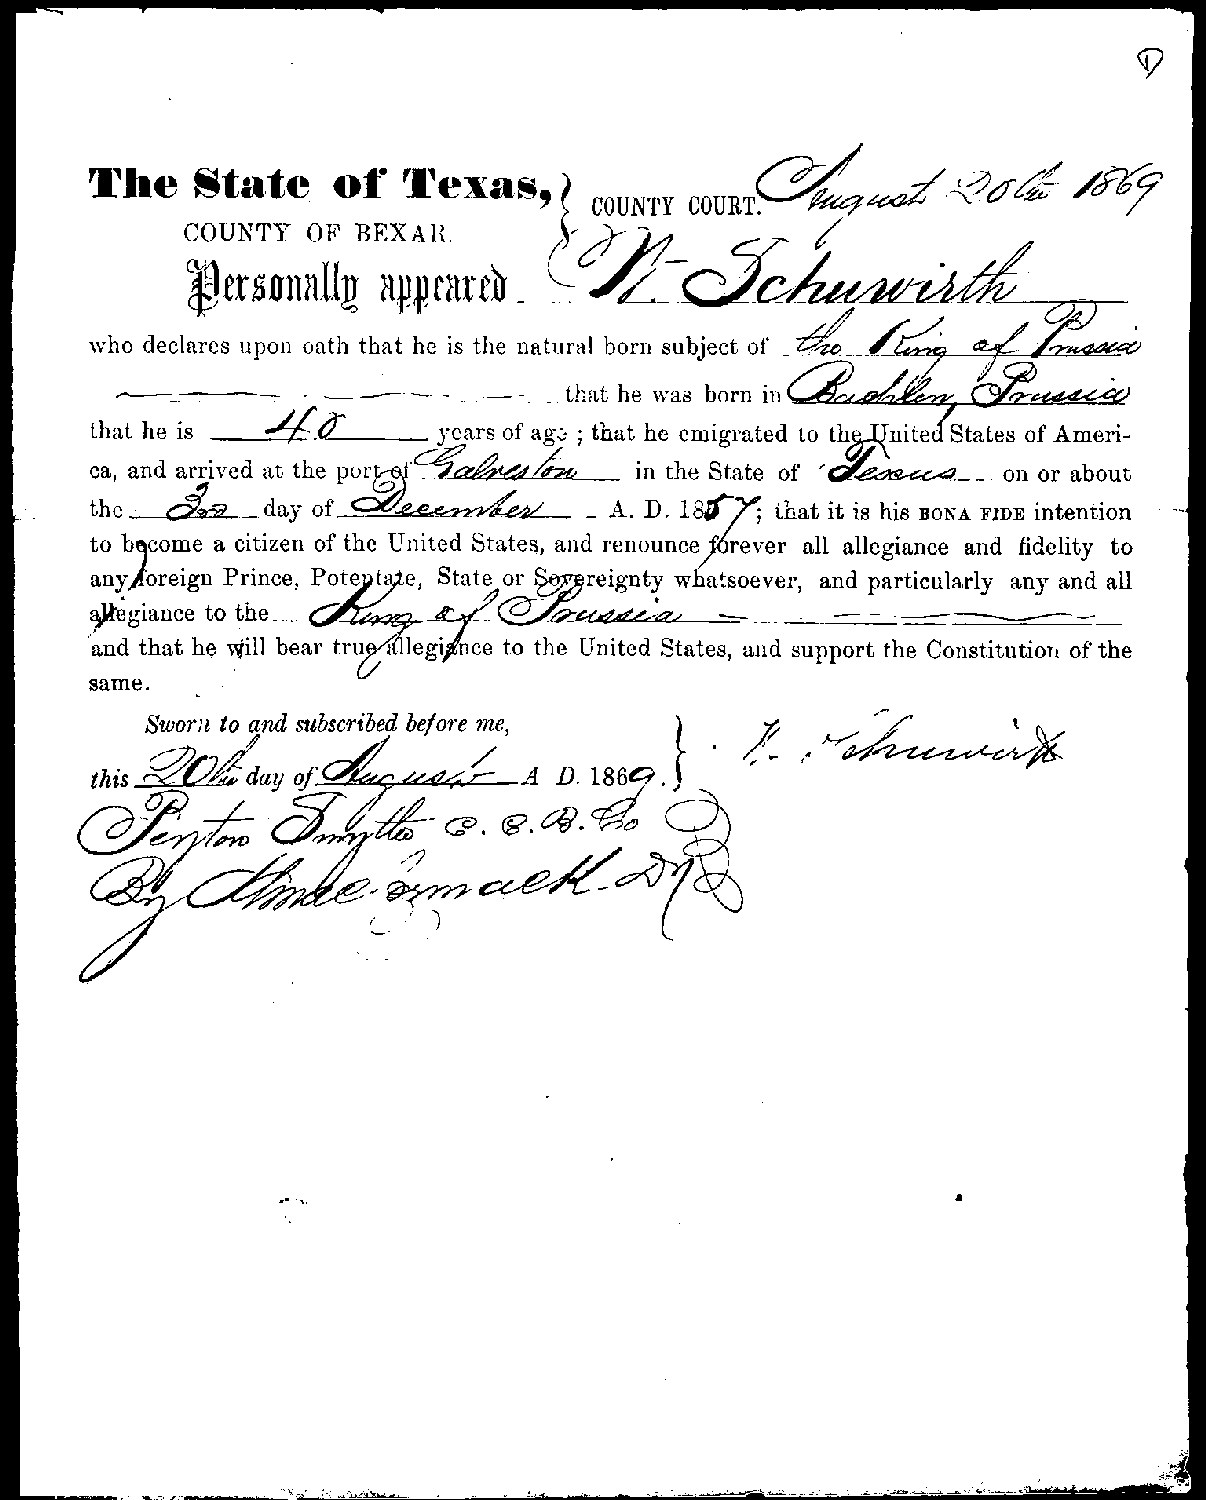 1
The State of Texas, COUNTY COURT. August 20th 1869
COUNTY OF BEXAR.
Personally appeared N. Schuwirth
who declares upon oath that he is the natural born subject of the King of Prussia
that he was born in Prussia
that he is 40 years of age ; that he emigrated to the United States of Ameri-
ca, and arrived at the port of Galveston in the State of Texas on or about
the 3rd day of December A. D. 1857; that it is his BONA FIDE intention
to become a citizen of the United States, and renounce forever all allegiance and fidelity to
any foreign Prince, Potentate, State or Sovereignty whatsoever, and particularly any and all
allegiance to the King of Prussia
and that he will bear true allegiance to the United States, and support the Constitution of the
same.
Sworn to and subscribed before me,
Schuwirth
this 20th day of August A D. 1869.
Peyton Smythe C. C. B. Co
By Dy